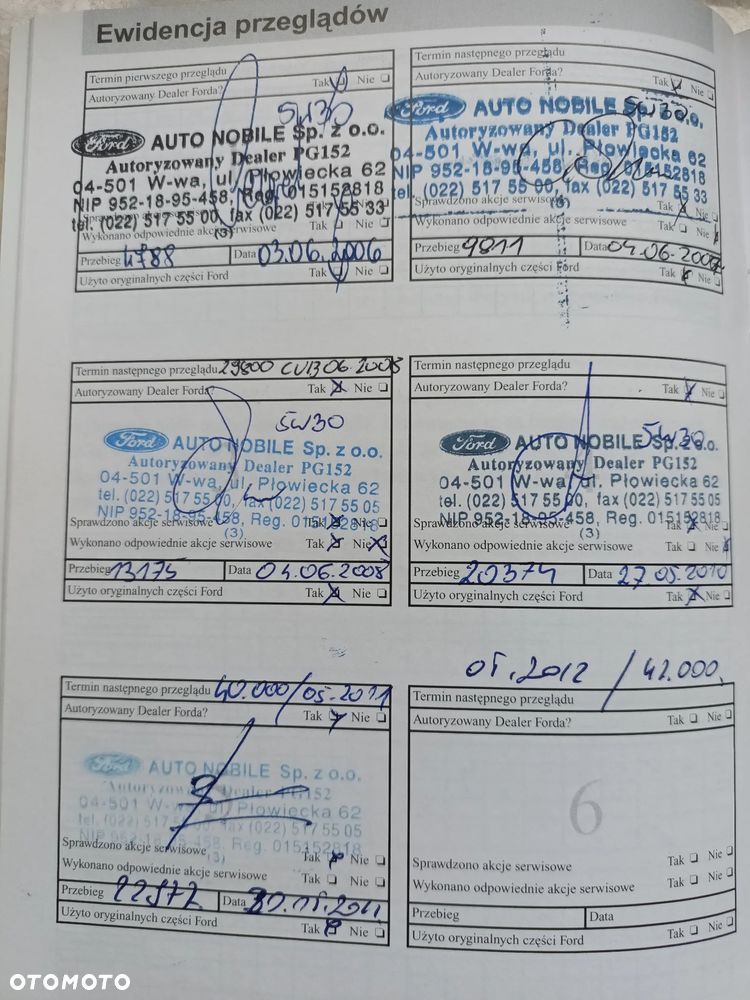 Ewidencja przeglądów
Termin pierwszego przeglądu Tak Nie
Autoryzowany Dealer Forda?
5W30
Ford AUTO NOBILE Sp. z o.o.
Autoryzowany Dealer PG152
04-501 W-wa, ul. Płowiecka 62
NIP 952-18-95-458, Reg. 015152818
tel. (022) 517 55 00, fax (022) 517 55 33
Wykonano odpowiednie akcje serwisowe
(3)
Przebieg 4788 Data 03.06.2006
Użyto oryginalnych części Ford Tak Nie
Termin następnego przeglądu
Autoryzowany Dealer Forda? Tak Nie
5W30
Ford AUTO NOBILE Sp. z o.o.
Autoryzowany Dealer PG152
04-501 W-wa, ul. Płowiecka 62
NIP 952-18-95-458, Reg. 015152818
tel. (022) 517 55 00, fax (022) 517 55 33
Sprawdzono akcje serwisowe Tak Nie
Wykonano odpowiednie akcje serwisowe Tak Nie
(3)
Przebieg 9811 Data 04.06.2007
Użyto oryginalnych części Ford Tak Nie
Termin następnego przeglądu 29800 06.2008
Autoryzowany Dealer Forda? Tak Nie
5W30
Ford AUTO NOBILE Sp. z o.o.
Autoryzowany Dealer PG152
04-501 W-wa, ul. Płowiecka 62
tel. (022) 517 55 00, fax (022) 517 55 05
NIP 952-18-95-458, Reg. 015152818
Sprawdzono akcje serwisowe Tak Nie
(3)
Wykonano odpowiednie akcje serwisowe Tak Nie
Przebieg 13175 Data 04.06.2008
Użyto oryginalnych części Ford Tak Nie
Termin następnego przeglądu
Autoryzowany Dealer Forda? Tak Nie
5W30
Ford AUTO NOBILE Sp. z o.o.
Autoryzowany Dealer PG152
04-501 W-wa, ul. Płowiecka 62
tel. (022) 517 55 00, fax (022) 517 55 05
NIP 952-18-95-458, Reg. 015152818
Sprawdzono akcje serwisowe Tak Nie
(3)
Wykonano odpowiednie akcje serwisowe Tak Nie
Przebieg 20374 Data 27.05.2010
Użyto oryginalnych części Ford Tak Nie
Termin następnego przeglądu 40.000/05.2011
Autoryzowany Dealer Forda? Tak Nie
Ford AUTO NOBILE Sp. z o.o.
Autoryzowany Dealer PG152
04-501 W-wa, ul. Płowiecka 62
tel. (022) 517 55 00, fax (022) 517 55 05
NIP 952-18-95-458, Reg. 015152818
Sprawdzono akcje serwisowe Tak Nie
(3)
Wykonano odpowiednie akcje serwisowe Tak Nie
Przebieg 22972 Data
Użyto oryginalnych części Ford Tak Nie
05.2012 / 42.000,
Termin następnego przeglądu
Autoryzowany Dealer Forda? Tak Nie
6
Sprawdzono akcje serwisowe Tak Nie
Wykonano odpowiednie akcje serwisowe Tak Nie
Przebieg Data
Użyto oryginalnych części Ford Tak Nie
OTOMOTO